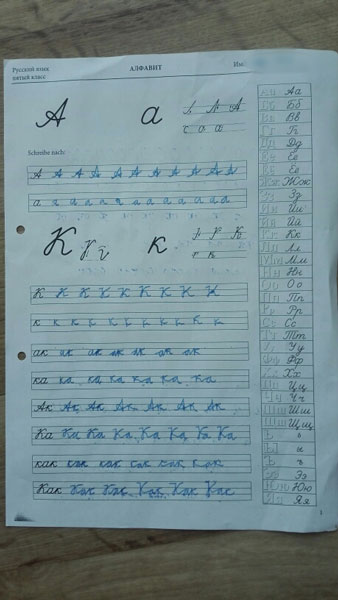 Русский язык АЛФАВИТ Имя:
пятый класс
А а
Schreibe nach:
А А А А А А А А А А
а а а а а а а а а а а а
К к
К К К К К К К К К
к к к к к к к к к к
ак ак ак ак ак ак ак
ка ка ка ка ка ка ка
Ак Ак Ак Ак Ак Ак Ак
Ка Ка Ка Ка Ка Ка Ка Ка
как как как как как как
Как Как Как Как Как Как
Аа
Бб
Вв
Гг
Дд
Ее
Ёё
Жж
Зз
Ии
Йй
Кк
Лл
Мм
Нн
Оо
Пп
Рр
Сс
Тт
Уу
Фф
Хх
Цц
Чч
Шш
Щщ
ъ
ы
ь
Ээ
Юю
Яя
1